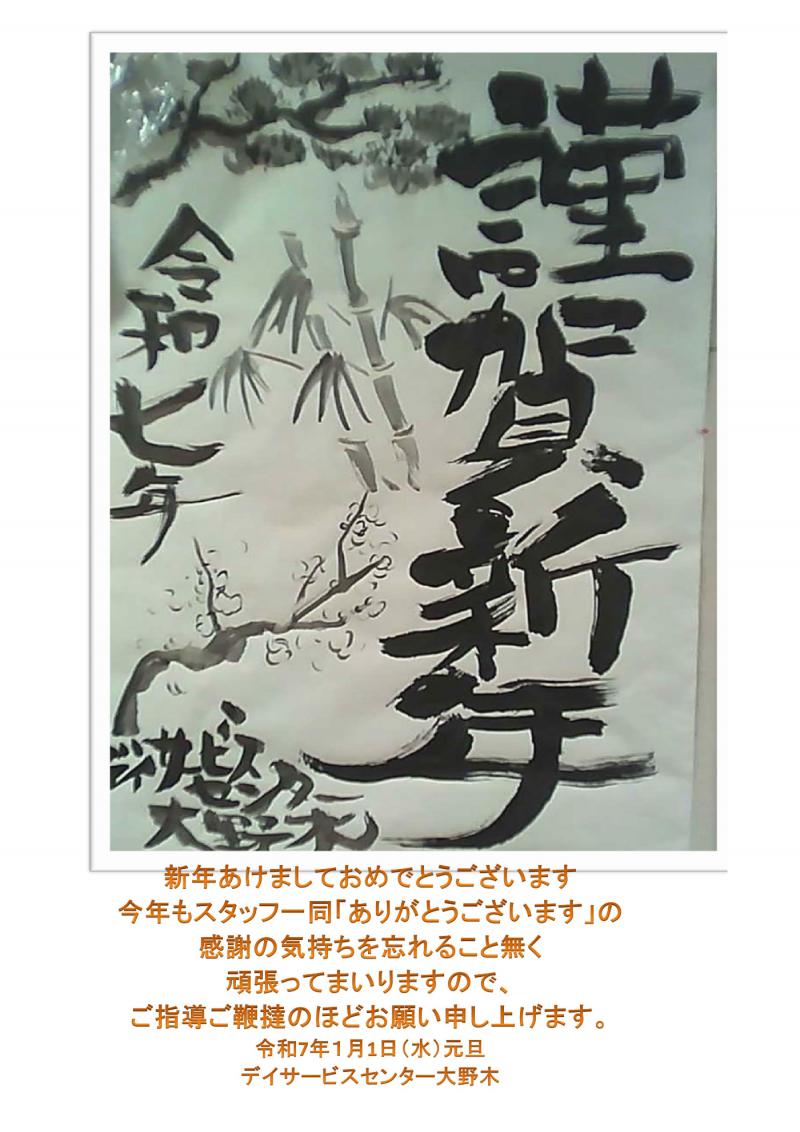 謹賀新年
令和七年
デイサービス
センター
大野木
新年あけましておめでとうございます
今年もスタッフ一同「ありがとうございます」の
感謝の気持ちを忘れること無く
頑張ってまいりますので、
ご指導ご鞭撻のほどお願い申し上げます。
令和7年1月1日（水）元旦
デイサービスセンター大野木